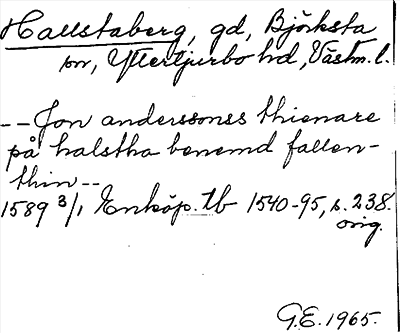 Hallstaberg, gd, Björksta
sn, Yttertjurbo hd, Västm. l.
-- Jon anderssonss thienare
på halstha benemd fallen-
thin --
1589 3/1 Enköp. tb 1540-95, s. 238.
orig.
G.E. 1965.